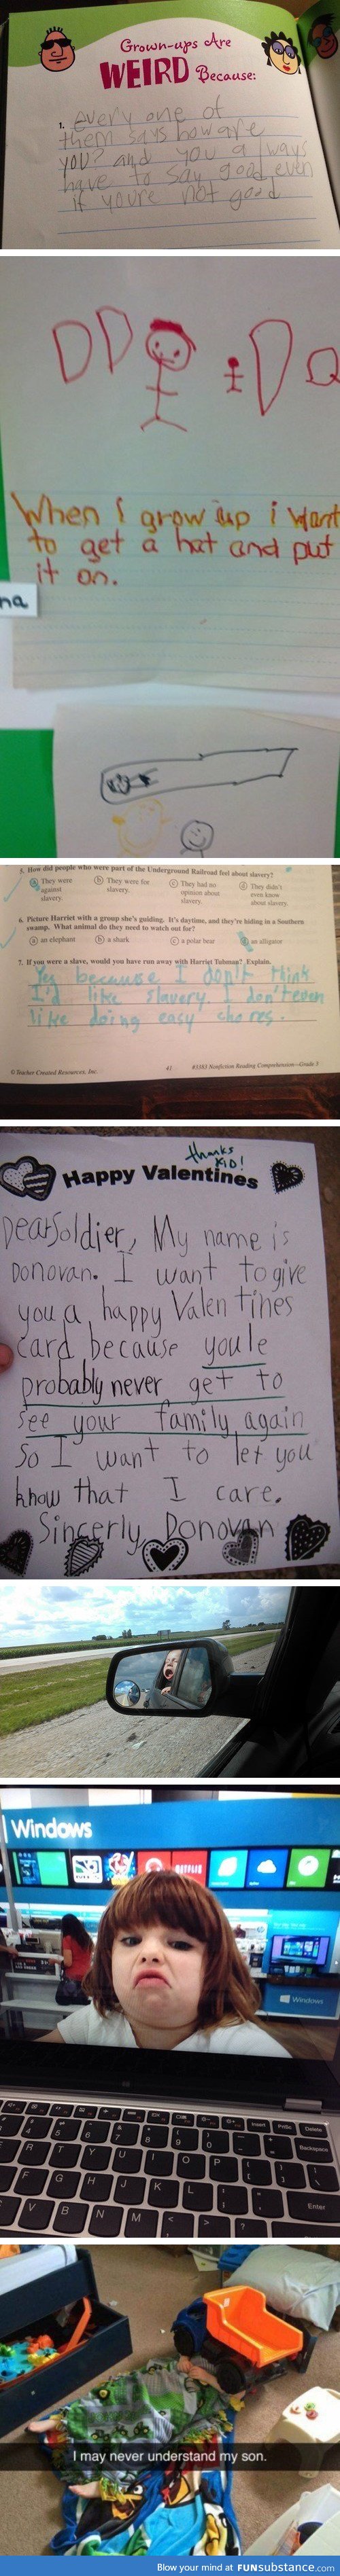 Grown-ups Are
WEIRD Because:
1. every one of
them says how are
you? and you always
have to say good even
if you're not good
When I grow up i want
to get a hat and put
it on.
na
5. How did people who were part of the Underground Railroad feel about slavery?
ⓐ They were against slavery.
ⓑ They were for slavery.
ⓒ They had no opinion about slavery.
ⓓ They didn't even know about slavery.
6. Picture Harriet with a group she's guiding. It's daytime, and they're hiding in a Southern
swamp. What animal do they need to watch out for?
ⓐ an elephant ⓑ a shark ⓒ a polar bear an alligator
7. If you were a slave, would you have run away with Harriet Tubman? Explain.
Yes because I don't think
I'd like slavery. I don't even
like doing easy chores.
© Teacher Created Resources, Inc. 41 #3383 Nonfiction Reading Comprehension—Grade 3
thanks
KID!
Happy Valentines
Dear Soldier, My name is
Donovan. I want to give
you a happy Valentines
card because you'le
probably never get to
see your family again
So I want to let you
know that I care.
Sincerly, Donovan
Windows
NETFLIX
Windows
Insert PrtSc Delete
4 5 6 7 8 9 0 Backspace
R T Y U I O P
F G H J K L Enter
V B N M < > ?
I may never understand my son.
Blow your mind at FUNsubstance.com